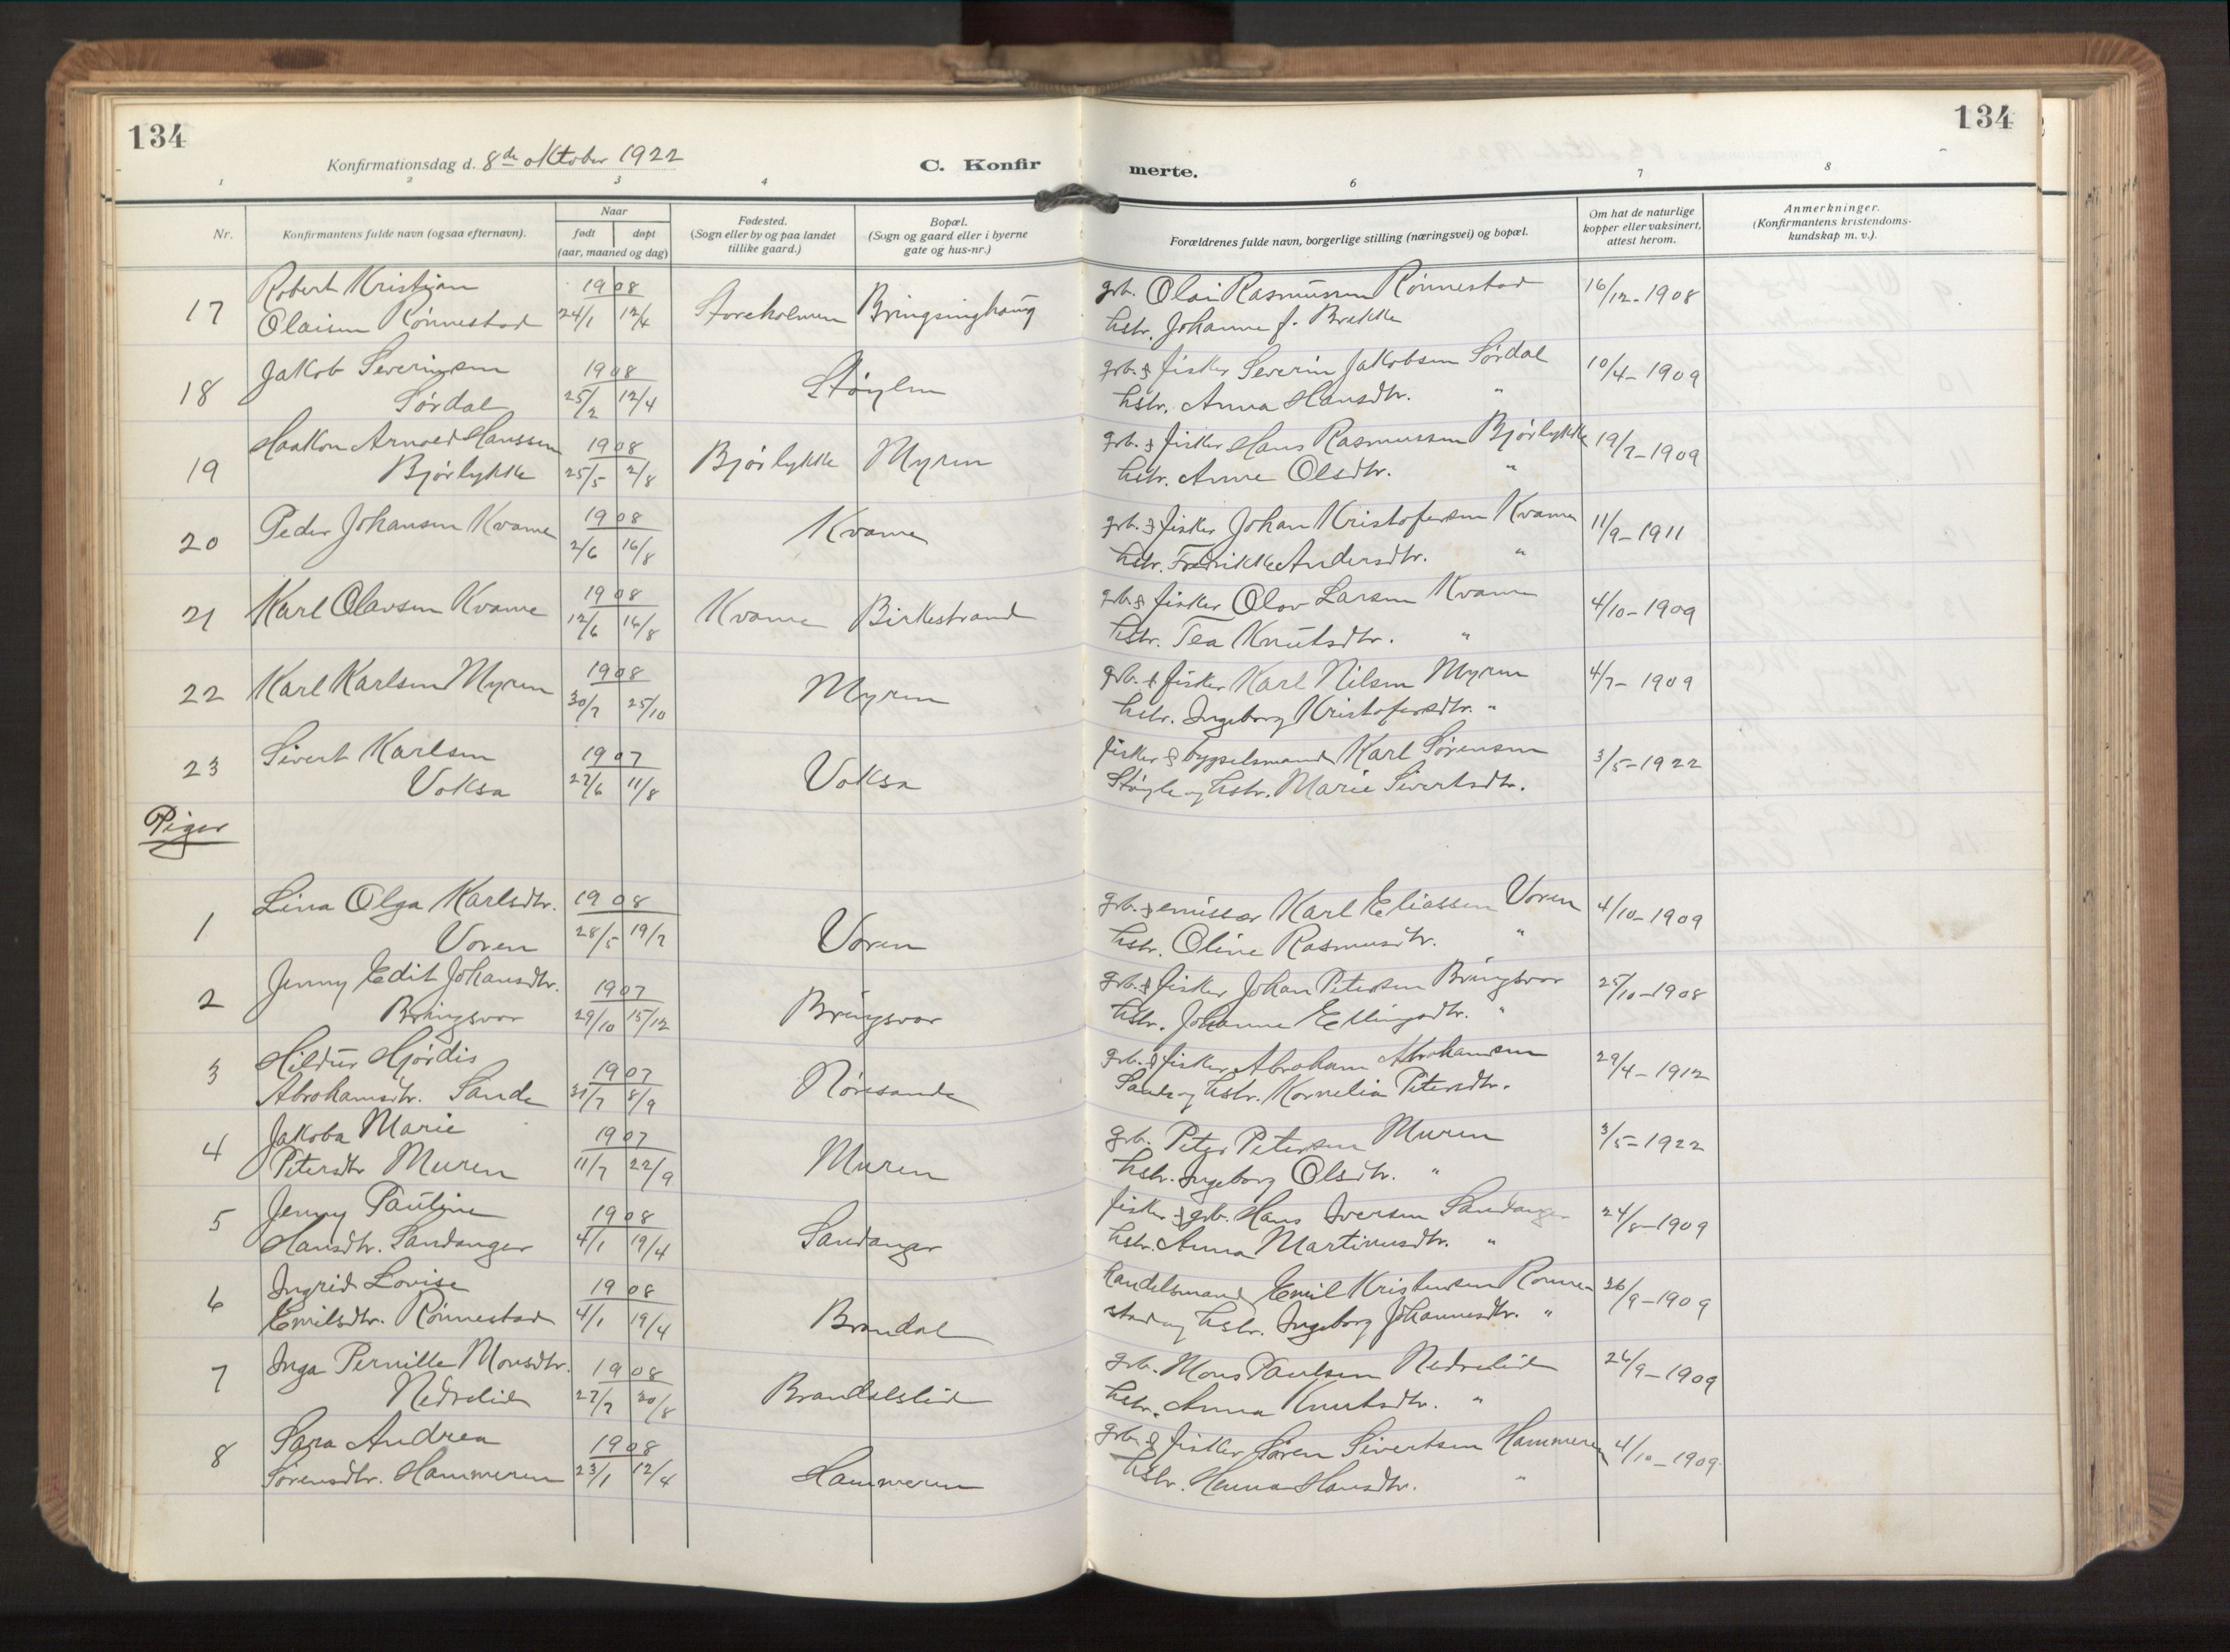 134
134
Konfirmationsdag d. 8de oktober 1922
C. Konfir
merte.
1 2 3 4 6 7 8
Nr.
Konfirmantens fulde navn (ogsaa efternavn).
Naar
født døpt
(aar, maaned og dag)
Fødested.
(Sogn eller by og paa landet
tillike gaard.)
Bopæl.
(Sogn og gaard eller i byerne
gate og hus-nr.)
Forældrenes fulde navn, borgerlige stilling (næringsvei) og bopæl.
Om hat de naturlige
kopper eller vaksinert,
attest herom.
Anmerkninger.
(Konfirmantens kristendoms-
kundskap m. v.).
17 Robert Kristian 1908 grb. Olai Rasmussen Rønnestad 16/12-1908
Olaisen Rønnestad 24/1 12/4 Storeholmen Bringsinghaug hstr. Johanne f. Brekke
18 Jakob Severinsen 1908 Støylen grb. & fisker Severin Jakobsen Sørdal 10/4-1909
Sørdal 25/2 12/4 hstr. Anna Hansdtr. "
19 Haakon Arnold Hanssen 1908 grb. & fisker Hans Rasmussen Bjørlykke 19/7-1909
Bjørlykke 25/5 2/8 Bjørlykke Myren hstr. Anne Olsdtr. "
20 Peder Johansen Kvame 1908 Kvame grb. & fisker Johan Kristofersen Kvame 11/9-1911
2/6 16/8 hstr. Fredrikke Andersdtr. "
21 Karl Olavsen Kvame 1908 Kvame Birkestrand grb. & fisker Olav Larsen Kvame 4/10-1909
12/6 16/8 hstr. Tea Knutsdtr. "
22 Karl Karlsen Myren 1908 Myren grb. & fisker Karl Nilsen Myren 4/7-1909
30/7 25/10 hstr. Ingeborg Kristofersdtr. "
23 Sivert Karlsen 1907 Voksa fisker & bygselsmand Karl Sørensen 3/5-1922
Voksa 27/6 11/8 Støyle og hstr. Marie Sivertsdtr.
Piger
1 Lina Olga Karlsdtr. 1908 grb. & emissær Karl Eliassen Voren 4/10-1909
Voren 28/5 19/7 Voren hstr. Oline Rasmusdtr. "
2 Jenny Edit Johansdtr. 1907 grb. & fisker Johan Petersen Bringsvor 25/10-1908
Bringsvor 29/10 15/12 Bringsvor hstr. Johanne Ellingsdtr. "
3 Hildur Hjørdis 1907 grb. & fisker Abraham Abrahamsen 29/4-1912
Abrahamsdtr. Sande 31/7 8/9 Nøresande Sande og hstr. Kornelia Petersdtr.
4 Jakoba Marie 1907 grb. Peter Petersen Muren 3/5-1922
Petersdtr Muren 11/7 22/9 Muren hstr. Ingeborg Olsdtr. "
5 Jenny Pauline 1908 fisker & grb. Hans Iversen Sandanger 24/8-1909
Hansdtr. Sandanger 4/1 19/4 Sandanger hstr. Anna Martinusdtr. "
6 Ingrid Lovise 1908 handelsmand Emil Kristensen Rønne- 26/9-1909
Emilsdtr. Rønnestad 4/1 19/4 Brandal stad og hstr. Ingeborg Johannesdtr. "
7 Inga Pernille Monsdtr. 1908 grb. Mons Paulsen Nedrelid 26/9-1909
Nedrelid 27/7 30/8 Brandalslid hstr. Anna Knutsdtr. "
8 Sara Andrea 1908 grb. & fisker Søren Sivertsen Hammeren 4/10-1909
Sørensdtr. Hammeren 23/1 12/4 Hammeren hstr. Hanna Hansdtr. "